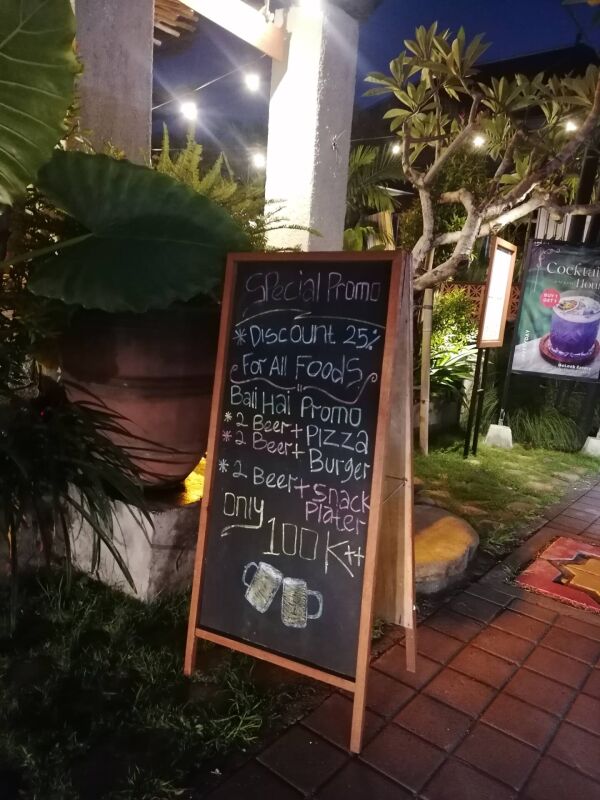 Special Promo
* Discount 25%
For All Foods
Bali Hai Promo
* 2 Beer + Pizza
* 2 Beer + Burger
* 2 Beer + Snack
Plater
only
100 K++
Cocktail
Hour
BUY 1
GET 1